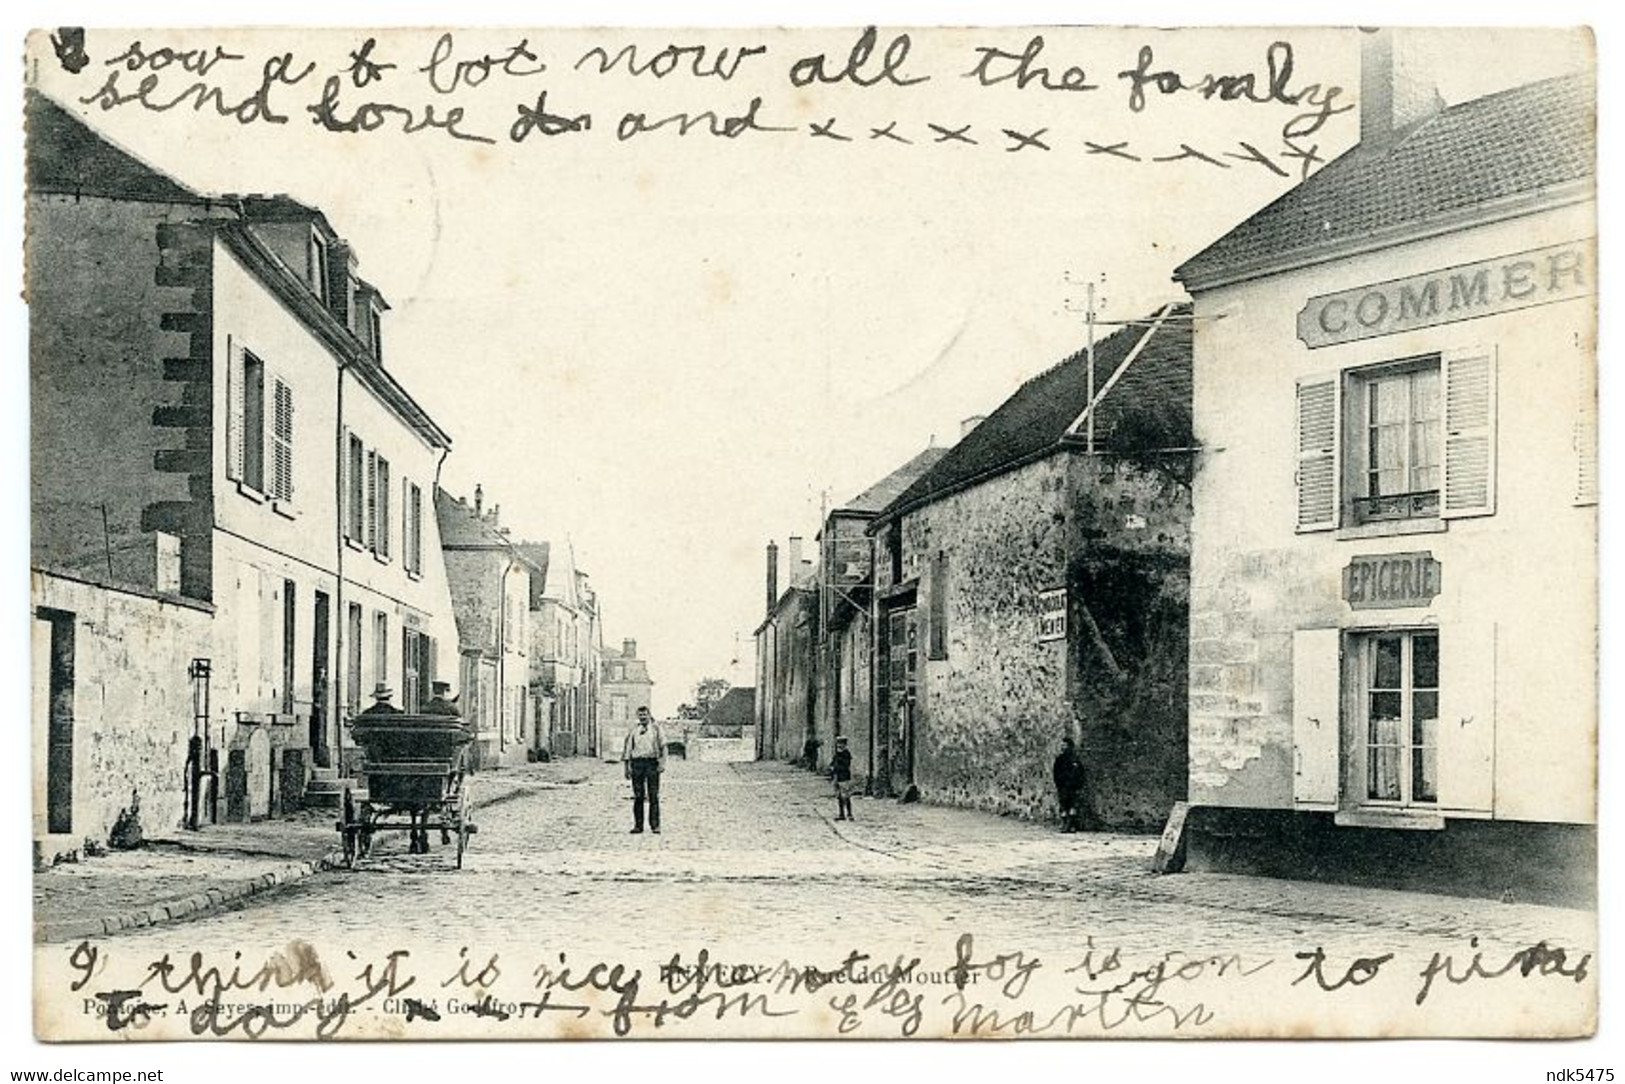 I sow a to bot now all the famly
send love and x x x x x x x x
COMMER
EPICERIE
CHOCOLAT
MENIER
I think it is nice the nty boy is gon to
ENNERY. - Rue du Moutier
Pontoise, A. Seyes, imp.-édit. - Cliché Godefroy
to day x x x from Martin
delcampe.net
ndk5475